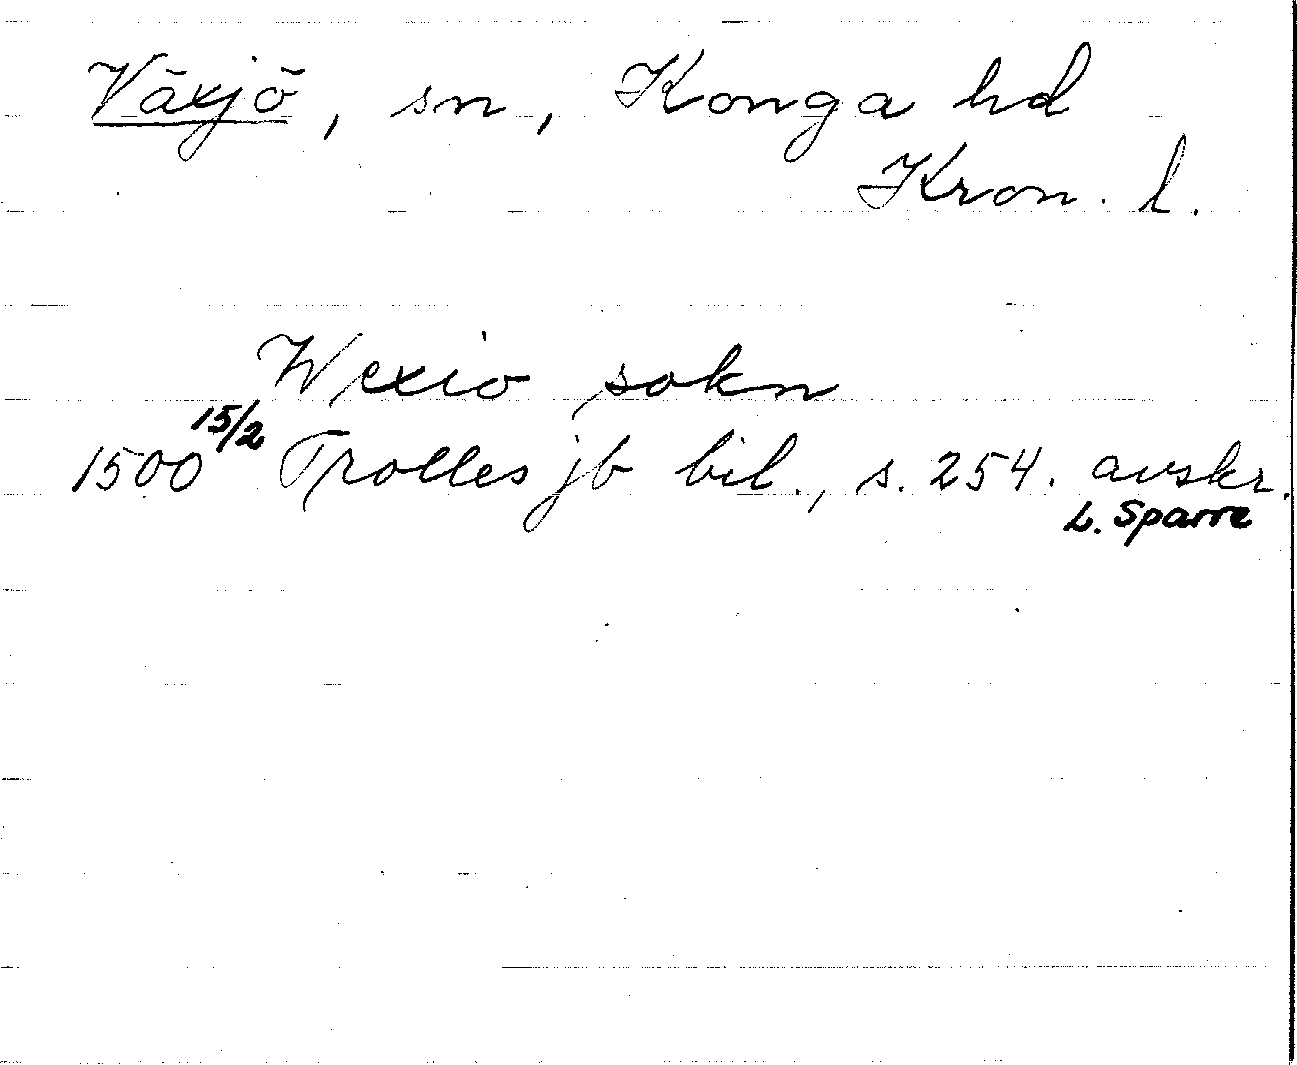 Växjö, sn, Konga hd
Kron. l.
Wexio sokn
1500 15/2 Trolles jb bil., s. 254. avskr.
L. Sparre